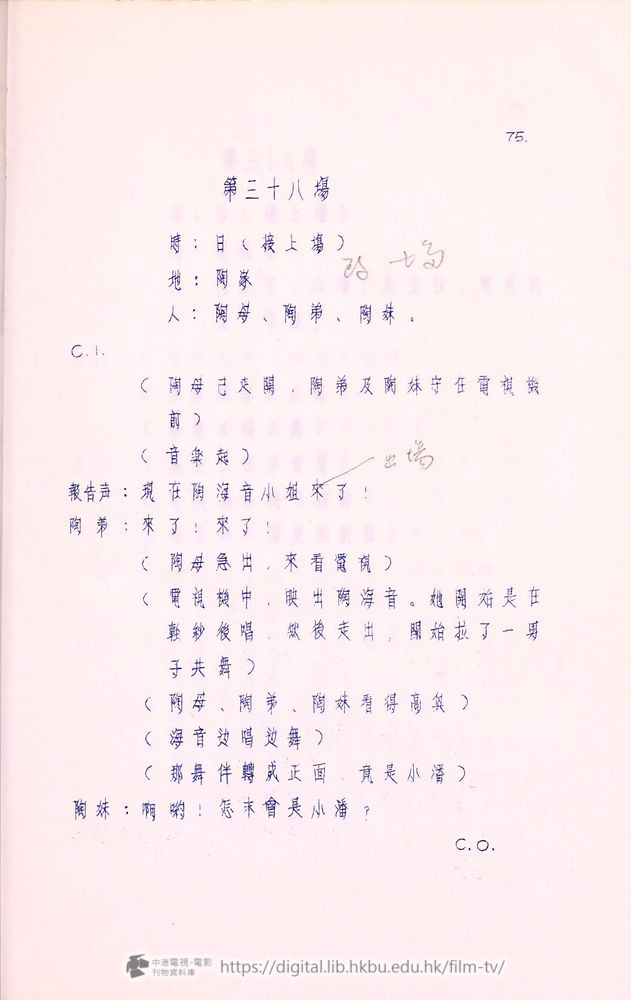 75.
第三十八場
時：日（接上場）
地：陶家
人：陶母、陶弟、陶妹。
C.I.
（陶母已走開，陶弟及陶妹守在電視機
前）
（音樂起）
出場
報告声：現在陶海音小姐來了！
陶弟：來了！來了！
（陶母急出，來看電視）
（電視機中，映出陶海音。她開始是在
輕紗後唱，然後走出，開始拉了一男
子共舞）
（陶母、陶弟、陶妹看得高興）
（海音边唱边舞）
（那舞伴轉成正面，竟是小潘）
陶妹：啊喲！怎末會是小潘？
C.O.
中港電視·電影
刊物資料庫
https://digital.lib.hkbu.edu.hk/film-tv/